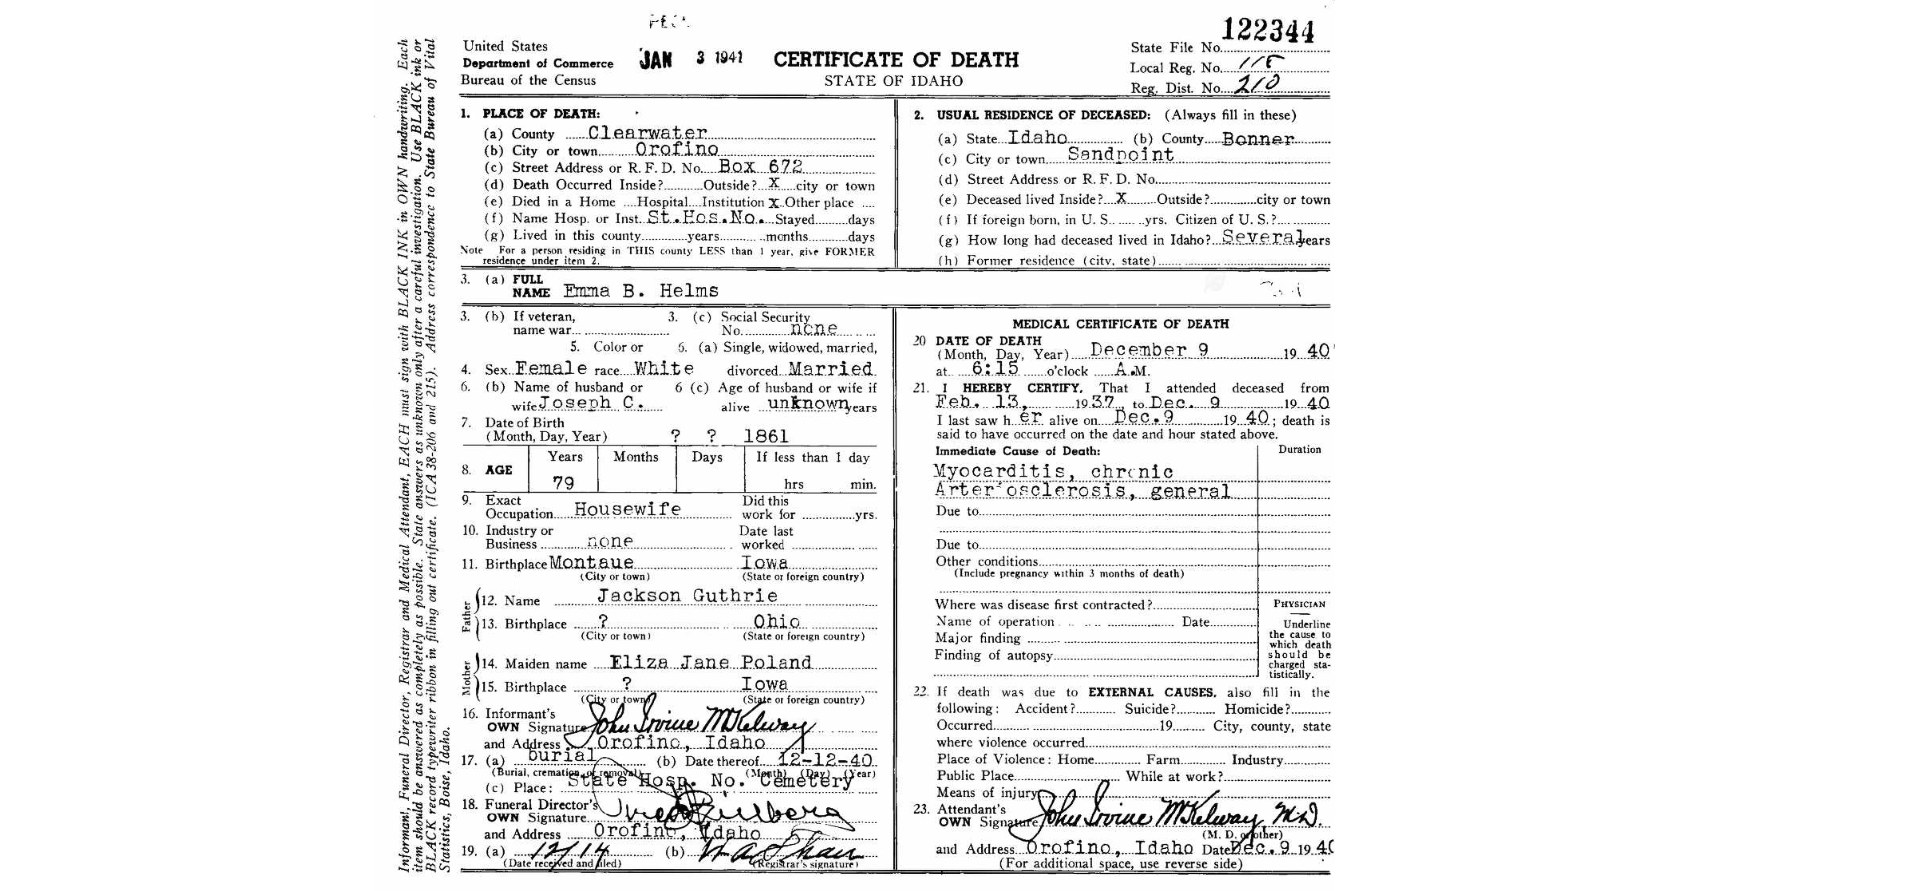 122344
United States
Department of Commerce
Bureau of the Census
JAN 3 1941
CERTIFICATE OF DEATH
STATE OF IDAHO
State File No.
Local Reg. No. 115
Reg. Dist. No. 210
Informant, Funeral Director, Registrar and Medical Attendant, EACH must sign with BLACK INK in OWN handwriting. Each
item should be answered as completely as possible. State answers as unknown only after a careful investigation. Use BLACK ink or
BLACK record typewriter ribbon in filling out certificate. (ICA 38-206 and 215). Address correspondence to State Bureau of Vital
Statistics, Boise, Idaho.
1. PLACE OF DEATH:
(a) County Clearwater
(b) City or town Orofino
(c) Street Address or R. F. D. No. Box 672
(d) Death Occurred Inside? Outside? X city or town
(e) Died in a Home Hospital Institution X Other place
(f) Name Hosp. or Inst. St.Hos.No. Stayed days
(g) Lived in this county years months days
Note For a person residing in THIS county LESS than 1 year, give FORMER
residence under item 2.
2. USUAL RESIDENCE OF DECEASED: (Always fill in these)
(a) State Idaho (b) County Bonner
(c) City or town Sandpoint
(d) Street Address or R. F. D. No.
(e) Deceased lived Inside? X Outside? city or town
(f) If foreign born, in U. S. yrs. Citizen of U. S.?
(g) How long had deceased lived in Idaho? Several years
(h) Former residence (city, state)
3. (a) FULL
NAME Emma B. Helms
3. (b) If veteran, 3. (c) Social Security
name war No. none
5. Color or 6. (a) Single, widowed, married,
4. Sex Female race White divorced Married
6. (b) Name of husband or 6 (c) Age of husband or wife if
wife Joseph C. alive unknown years
7. Date of Birth
(Month, Day, Year) ? ? 1861
8. AGE Years Months Days If less than 1 day
79 hrs min.
9. Exact Did this
Occupation Housewife work for yrs.
10. Industry or Date last
Business none worked
11. Birthplace Montaue Iowa
(City or town) (State or foreign country)
Father
12. Name Jackson Guthrie
13. Birthplace ? Ohio
(City or town) (State or foreign country)
Mother
14. Maiden name Eliza Jane Poland
15. Birthplace ? Iowa
(City or town) (State or foreign country)
16. Informant's
OWN Signature John Irvine McKelway
and Address Orofino, Idaho
17. (a) burial (b) Date thereof 12-12-40
(Burial, cremation or removal) (Month) (Day) (Year)
(c) Place: State Hosp. No. Cemetery
18. Funeral Director's
OWN Signature
and Address Orofino, Idaho
19. (a) 12/14 (b)
(Date received and filed) (Registrar's signature)
MEDICAL CERTIFICATE OF DEATH
20 DATE OF DEATH
(Month, Day, Year) December 9 19 40
at 6:15 o'clock A.M.
21. I HEREBY CERTIFY, That I attended deceased from
Feb. 13, 1937 to Dec. 9 19 40
I last saw her alive on Dec.9 19 40; death is
said to have occurred on the date and hour stated above.
Immediate Cause of Death: Duration
Myocarditis, chronic
Arteriosclerosis, general
Due to
Due to
Other conditions
(Include pregnancy within 3 months of death)
Where was disease first contracted?
Name of operation Date
Major finding
Finding of autopsy
PHYSICIAN
Underline
the cause to
which death
should be
charged sta-
tistically.
22. If death was due to EXTERNAL CAUSES, also fill in the
following: Accident? Suicide? Homicide?
Occurred 19 City, county, state
where violence occurred
Place of Violence: Home Farm Industry
Public Place While at work?
Means of injury
23. Attendant's
OWN Signature John Irvine McKelway, M.D.
(M. D. or other)
and Address Orofino, Idaho Date Dec. 9 19 40
(For additional space, use reverse side)